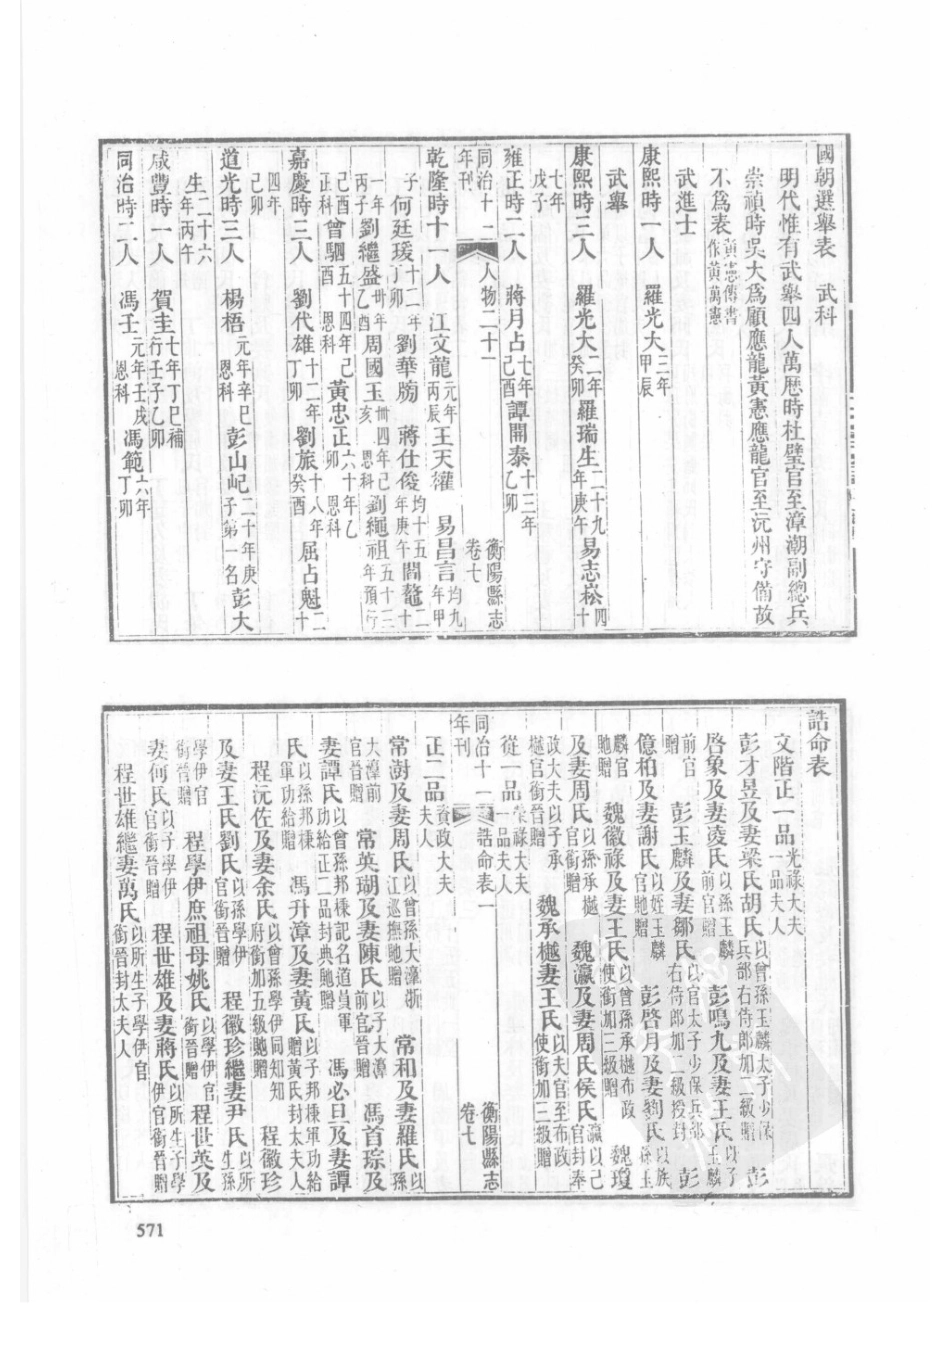 國朝選舉表　武科
明代惟有武舉四人萬歷時杜璧官至漳潮副總兵
崇禎時吳大爲顧應龍黃憲應龍官至沅州守備故
不爲表黃憲傳書作黃萬憲
武進士
康熙時一人　羅光大三年甲辰
武舉
康熙時三人　羅光大二年癸卯羅瑞生二十九年庚午易志崧四十
七年戊子
雍正時二人　蔣月占七年己酉譚開泰十三年乙卯
衡陽縣志卷七
人物二十一
同治十二年刊
乾隆時十一人　江文龍元年丙辰王天㰌　易昌言均九年甲
子何廷瑗十二年丁卯劉華㫼　蔣仕俊均十五年庚午閻鼇二十
一年丙子劉繼盛卅年乙酉周國玉卅四年己亥恩科劉繩祖五十三年預行
己酉正科曾駟五十四年己酉恩科黃忠正六十年乙卯恩科
嘉慶時三人　劉代雄十二年丁卯劉旅十八年癸酉　屈占魁二十
四年己卯
道光時三人　楊梧元年辛巳恩科彭山屺二十年庚子第一名彭大
生二十六年丙午
咸豐時一人　賀圭七年丁巳補行壬子乙卯
同治時二人　馮壬元年壬戌恩科馮範六年丁卯
誥命表
文階正一品光祿大夫一品夫人
彭才昱及妻梁氏胡氏以曾孫玉麟太子少保兵部右侍郎加二級贈　彭
啓象及妻凌氏以孫玉麟前官贈　彭鳴九及妻王氏以子玉麟
前官贈　彭玉麟及妻鄒氏以官太子少保兵部右侍郎加二級授封　彭
億柏及妻謝氏以姪玉麟官貤贈　彭啓月及妻劉氏以族孫玉
麟官貤贈　魏徽祿及妻王氏以曾孫承樾布政使銜加三級贈　魏瓊
及妻周氏以孫承樾官銜贈　魏瀛及妻周氏侯氏瀛以己官封奉
政大夫以子承樾官銜晉贈　魏承樾妻王氏以夫官至布政使銜加三級贈
從一品榮祿大夫一品夫人
衡陽縣志卷七
誥命表一
同治十一年刊
正二品資政大夫夫人
常澍及妻周氏以曾孫大淳浙江巡撫貤贈　常和及妻羅氏以孫
大淳前官晉贈　常英瑚及妻陳氏以子大淳前官晉贈　馮首琮及
妻譚氏以曾孫邦棟記名道員軍功給正二品封典貤贈　馮必旦及妻譚
氏以孫邦棟軍功給贈　馮升漳及妻黃氏以子邦棟軍功給贈黃氏封太夫人
程沅佐及妻余氏以曾孫學伊同知知府銜加五級貤贈　程徽珍
及妻王氏劉氏以孫學伊官銜晉贈　程徽珍繼妻尹氏以所生孫
學伊官銜晉贈　程學伊庶祖母姚氏以學伊官銜晉贈程世英及
妻何氏以子學伊官銜晉贈　程世雄及妻蔣氏以所生子學伊官銜晉贈
程世雄繼妻萬氏以所生子學伊官銜晉封太夫人
571